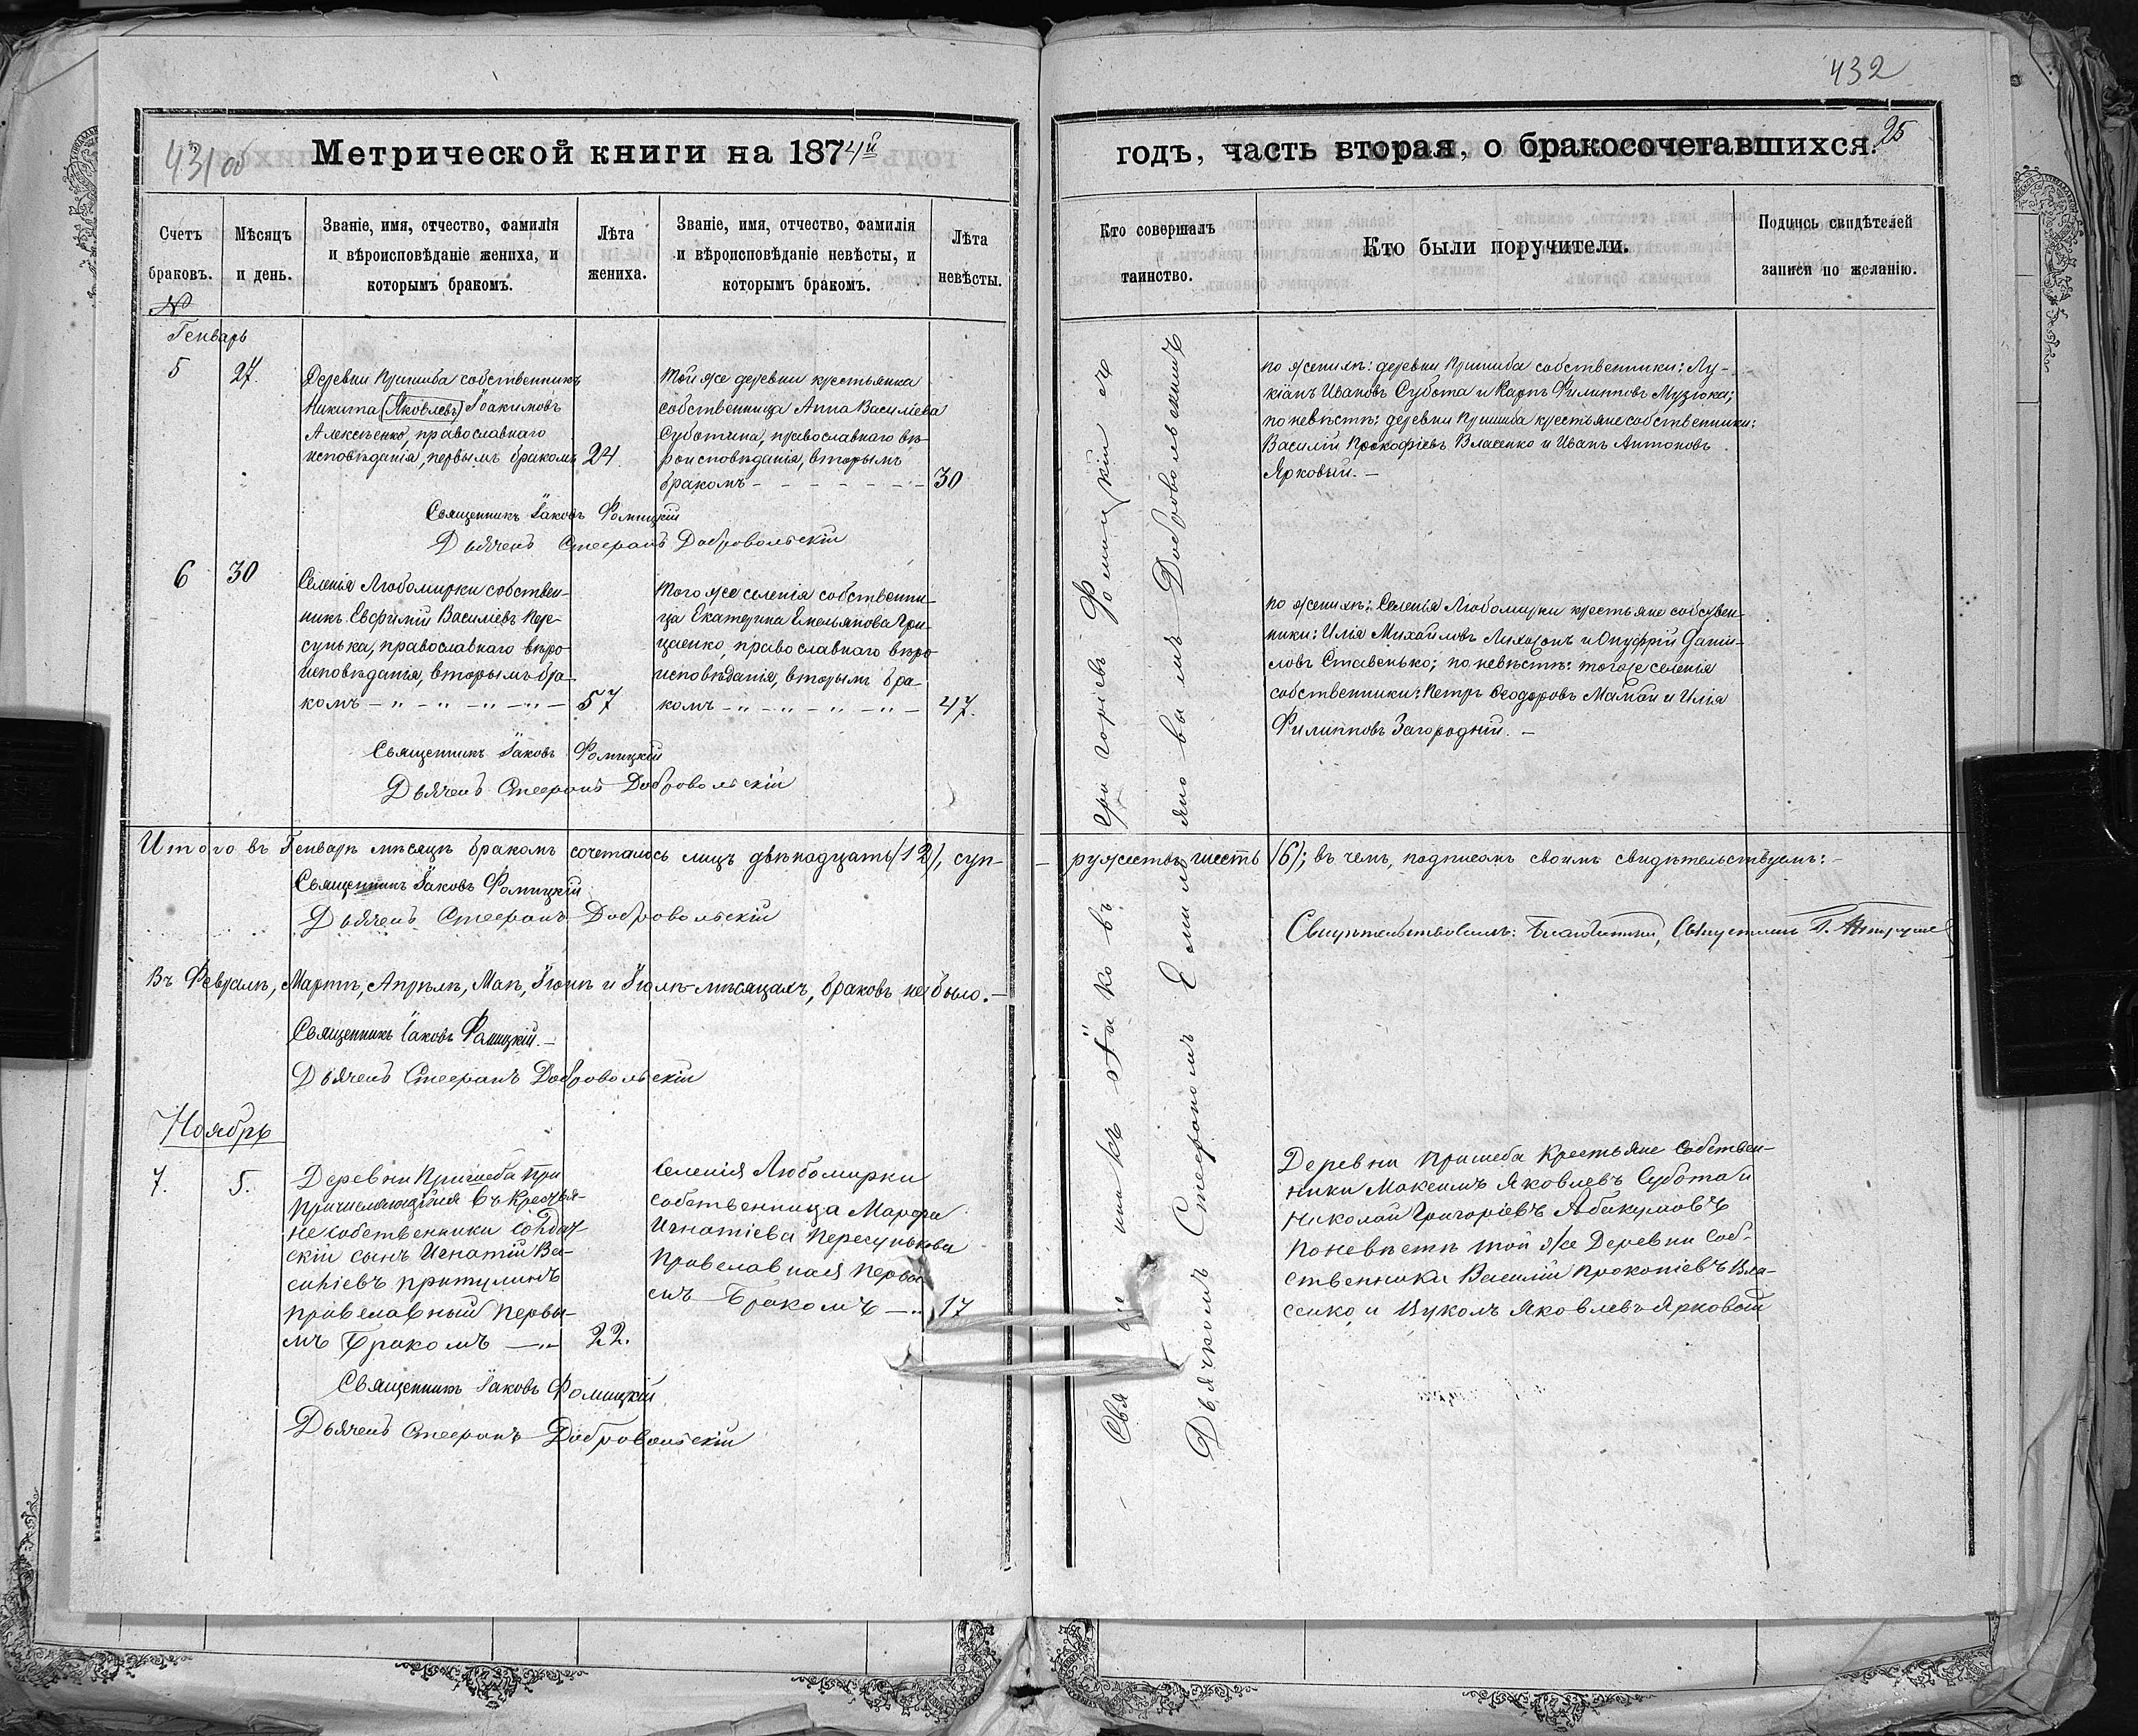 432
431 об
Метрической книги на 1874й
годъ, часть вторая, о бракосочетавшихся.
25
Счетъ браковъ.
№
Мѣсяцъ и день.
Званіе, имя, отчество, фамилія
и вѣроисповѣданіе жениха, и
которымъ бракомъ.
Лѣта
жениха.
Званіе, имя, отчество, фамилія
и вѣроисповѣданіе невѣсты, и
которымъ бракомъ.
Лѣта
невѣсты.
Кто совершалъ
таинство.
Кто были поручители.
Подпись свидѣтелей
записи по желанію.
Генварь
5
27.
Деревни Пришиба собственникъ
Никита (Яковлевъ) Іоакимовъ
Алексѣенко, православнаго
исповѣданія, первымъ бракомъ
24.
Той же деревни крестьянка
собственница Анна Василіева
Суботина, православнаго вѣ-
роисповѣданія, вторымъ
бракомъ - - - - - - -
30
по женихѣ: деревни Пришиба собственники: Лу-
кіанъ Ивановъ Субота и Карпъ Филипповъ Музюка;
по невѣстѣ: деревни Пришиба крестьяне собственники:
Василій Прокофіевъ Власенко и Иванъ Антоновъ
Ярковый. -
Священникъ Іаковъ Фомицкій
Дьячекъ Стефанъ Добровольскій
6
30
Селенія Любомирки собствен-
никъ Евфимій Василіевъ Пере-
сунька, православнаго вѣро-
исповѣданія, вторымъ бра-
комъ - " - " - " - " -
57
Того же селенія собственни-
ца Екатерина Емельянова Гри-
цаенко, православнаго вѣро-
исповѣданія, вторымъ бра-
комъ - " - " - " - " -
47.
по женихѣ: Селенія Любомирки крестьяне собствен-
ники: Илія Михайловъ и Онуфрій Дани-
ловъ Ставенько; по невѣстѣ: того же селенія
собственники: Петръ Ѳеодоровъ Мамай и Илія
Филипповъ Загородній. -
Священникъ Іаковъ Фомицкій
Дьячекъ Стефанъ Добровольскій
Итого въ Генварѣ мѣсяцѣ бракомъ сочеталось лицъ двѣнадцать (12), суп-
- ружествъ шесть (6); въ чемъ, подписомъ своимъ свидѣтельствуемъ: -
Священникъ Іаковъ Фомицкій
Дьячекъ Стефанъ Добровольскій
Свидѣтельствовалъ: Благочинный, Священникъ Г.
Въ Февралѣ, Мартѣ, Апрѣлѣ, Маѣ, Іюнѣ и Іюлѣ-мѣсяцахъ, браковъ не было. -
Священникъ Іаковъ Фомицкій. -
Дьячекъ Стефанъ Добровольскій
Ноябрь
7.
5.
Деревни Пришеба При
причисляющійся въ Крестья-
не собственники солдат-
скій сынъ Игнатій Ва-
силіевъ Притулинъ
православный первы-
мъ Бракомъ - " -
22.
Селенія Любомирки
собственница Марфа
Игнатіева Пересунькова
Православная первы-
мъ Бракомъ - "
17
Деревни Пришеба Крестьяне Собствен-
ники Максимъ Яковлевъ Субота и
Николай Григоріевъ Абакумовъ
По невѣстѣ той же Деревни Соб-
ственники Василій Прокопіевъ Вла-
сенко и Вуколъ Яковлевъ Ярковый
Священникъ Іаковъ Фомицкій.
Дьячекъ Стефанъ Добровольскій
- Священникъ Іаковъ Григоріевъ Фомицкій съ
Дьячкомъ Стефаномъ Емиліановымъ Добровольскимъ